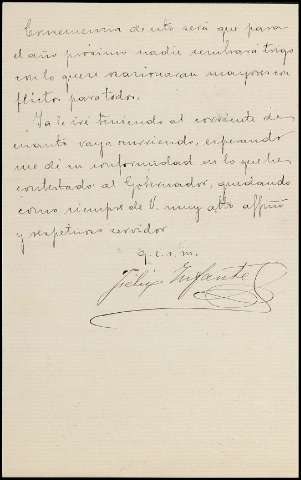 Consecuencia de esto será que para
el año próximo nadie sembrará trigo
con lo que se ocasionaran mayores con
flictos para todos.
Ya le iré teniendo al corriente de
cuanto vaya ocurriendo, esperando
me dé su conformidad en lo que he
contestado al Gobernador, quedando
como siempre de V. muy atto affmo
y respetuoso servidor
q.e.s.m.
Felix Infante